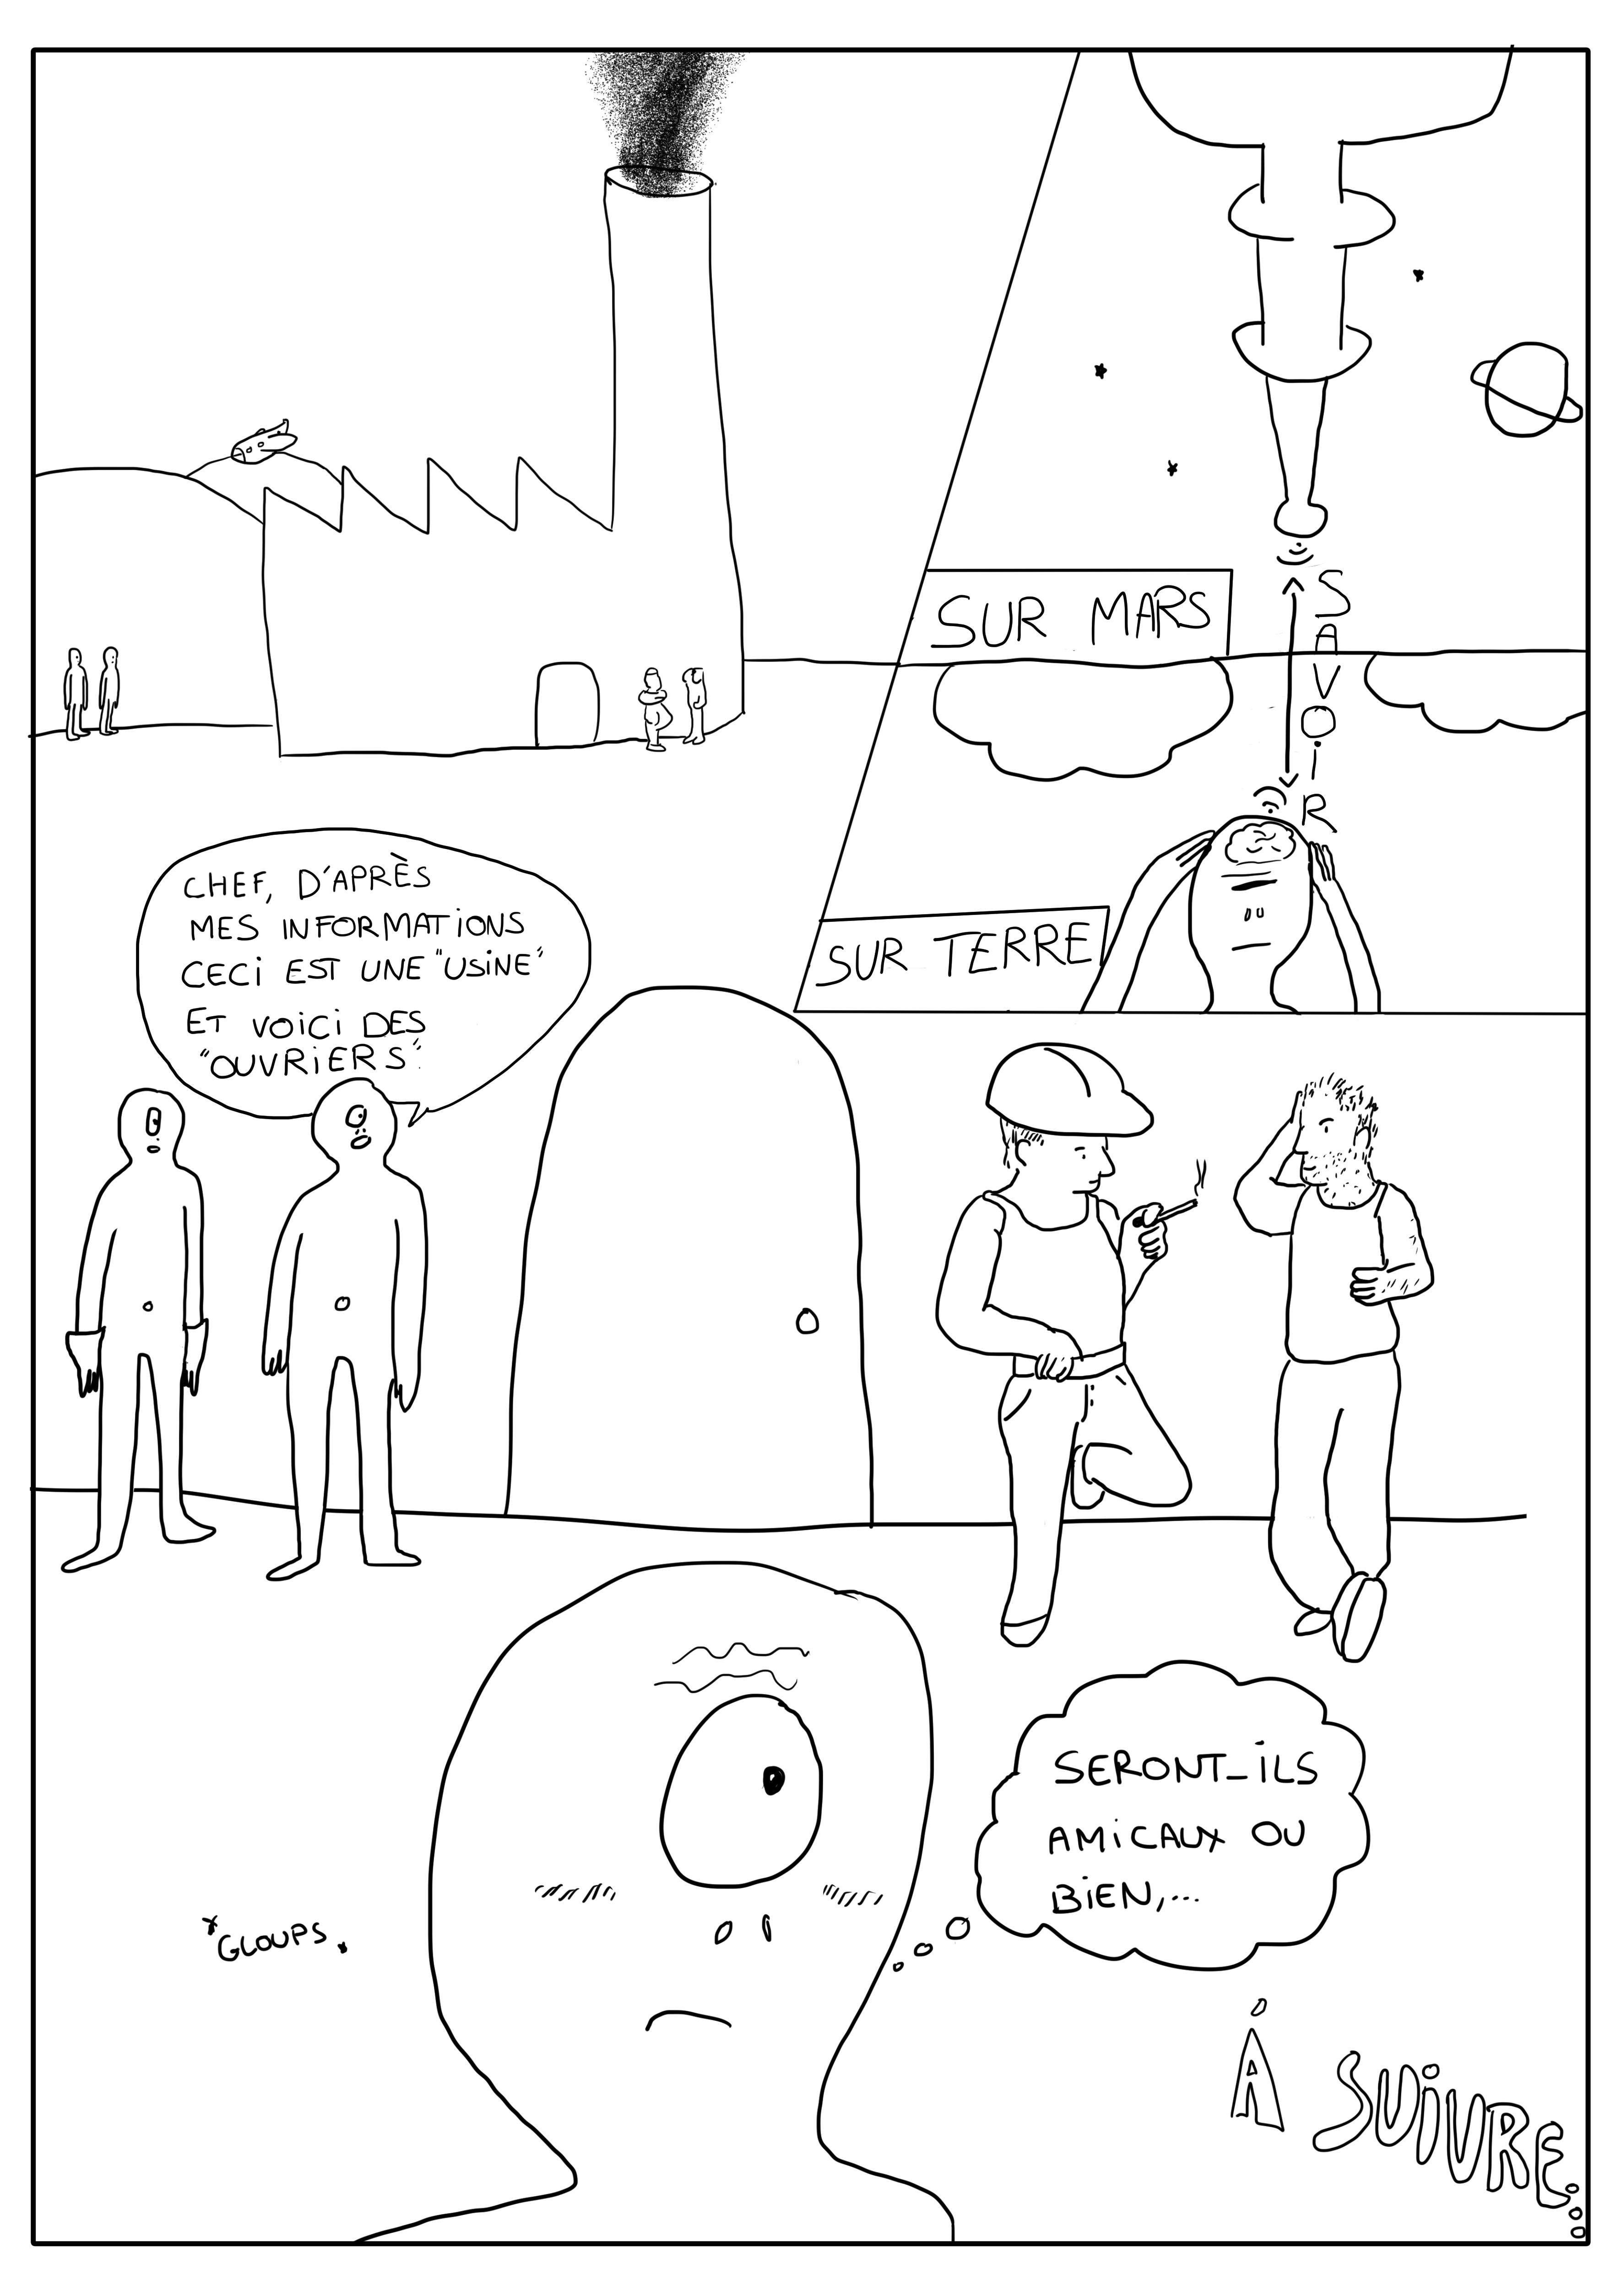 SUR MARS
SAVOiR
SUR TERRE
CHEF, D'APRÈS
MES INFORMATIONS
CECi EST UNE "USiNE"
ET VOiCi DES
"OUVRiERS".
SERONT_iLS
AMiCAUX OU
BiEN,...
*GLOUPS*
À SUiVRE...